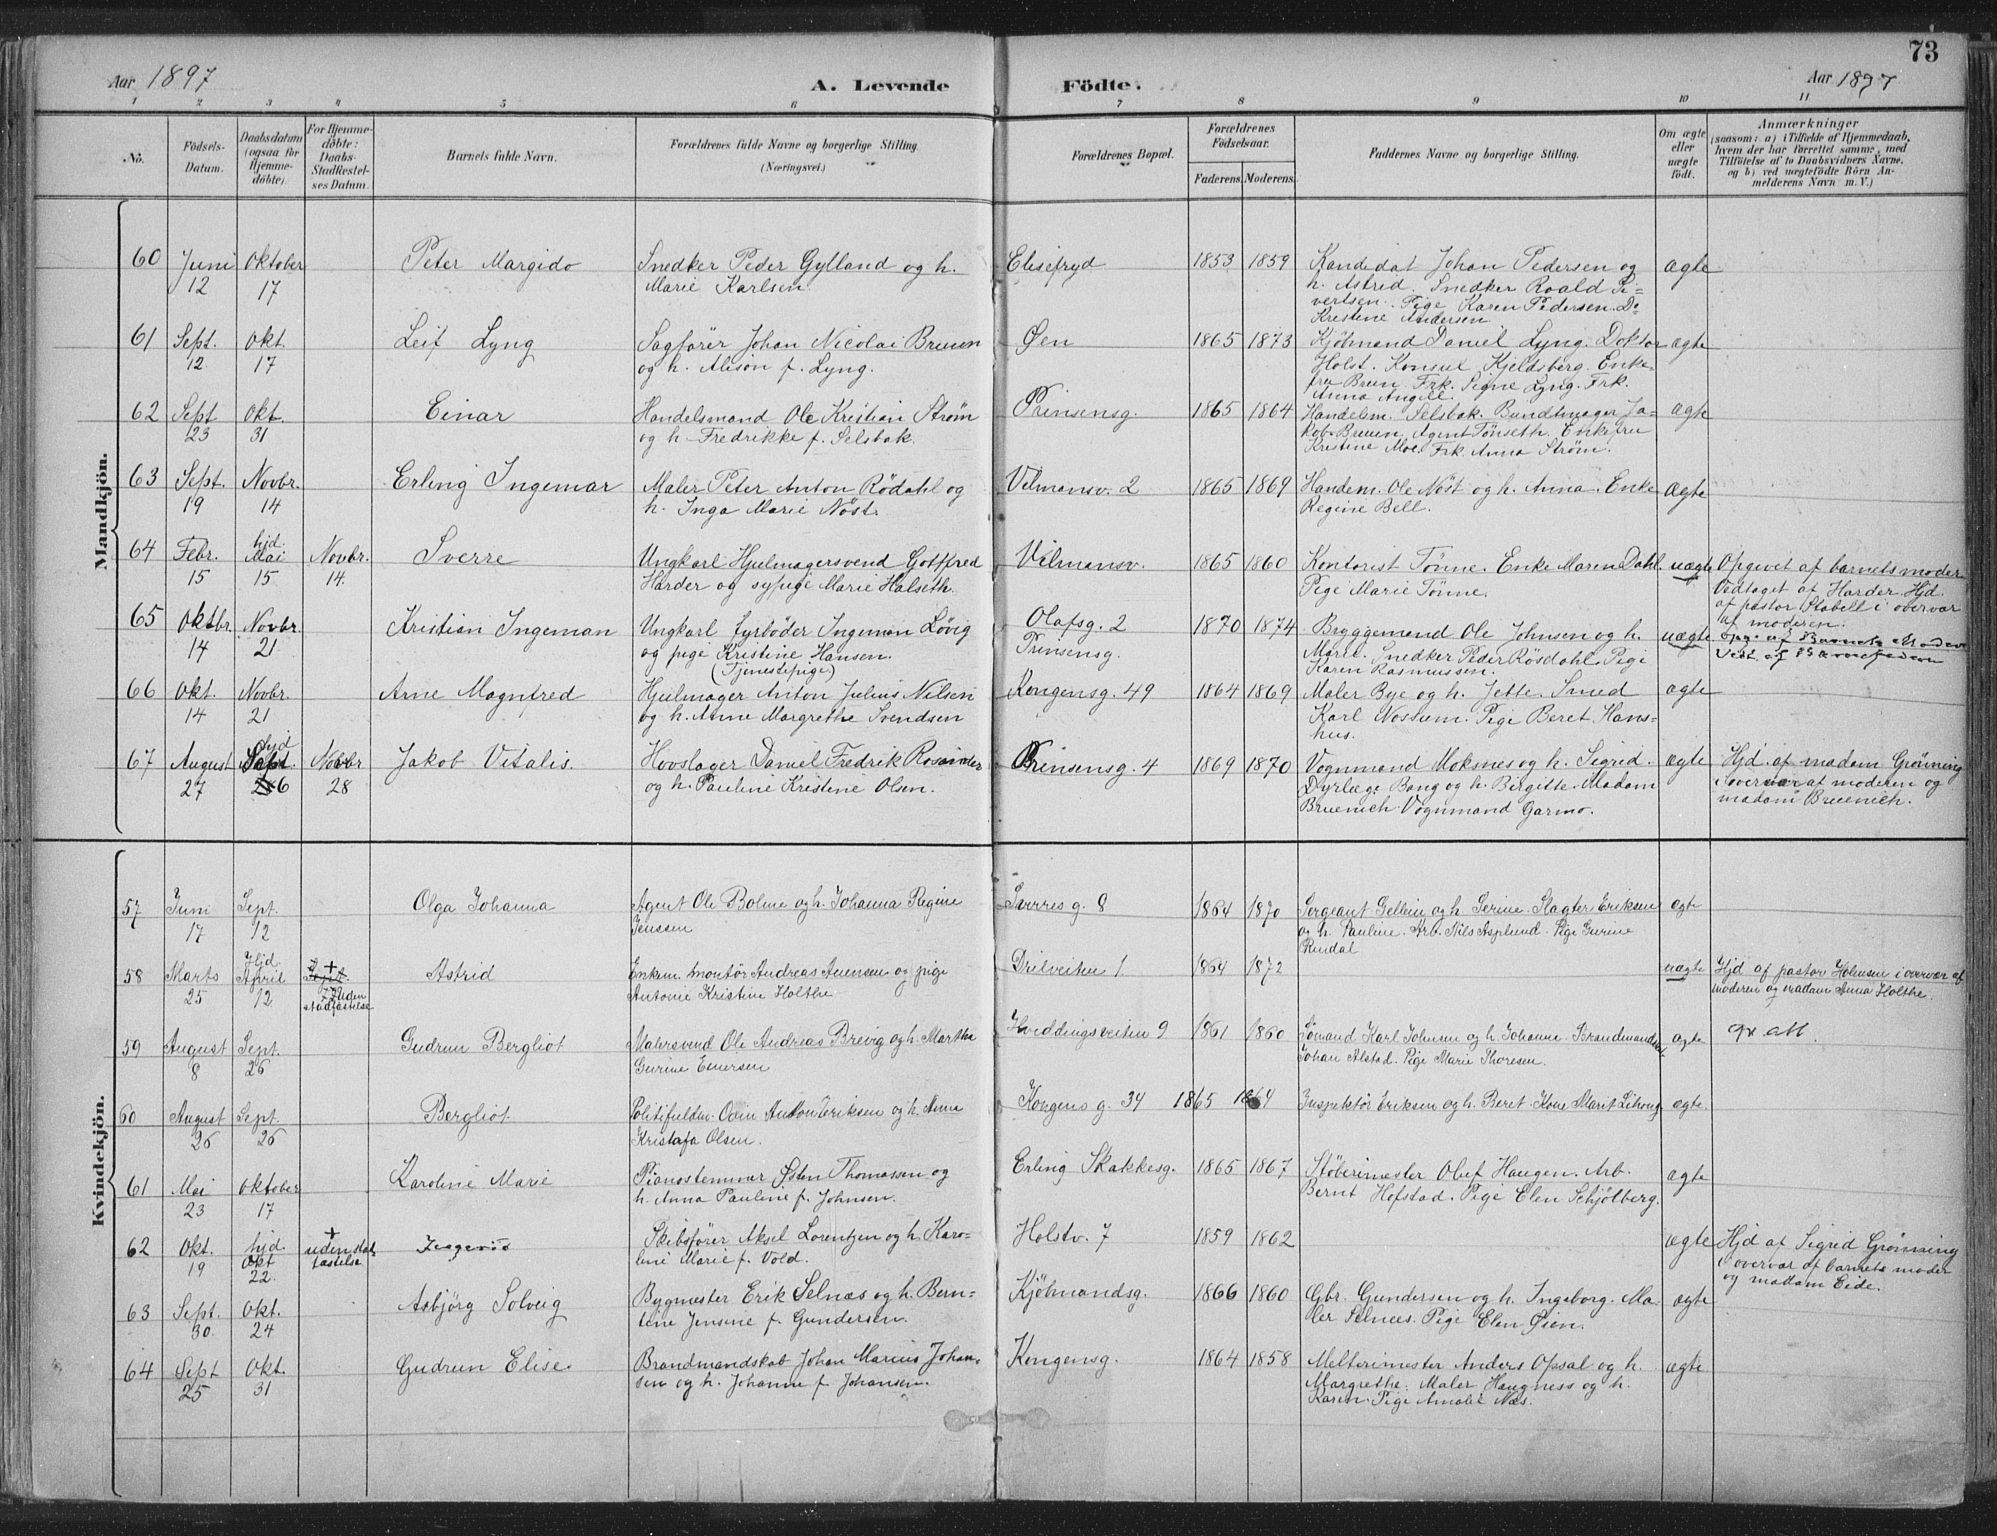 73
Aar 1897
A. Levende Födte.
Aar 1897
1 2 3 4 5 6 7 8 9 10 11
No.
Födsels-Datum.
Daabsdatum (ogsaa for Hjemme-döbte).
For Hjemme-döbte: Daabs-Stadfæstel-ses Datum.
Barnets fulde Navn.
Forældrenes fulde Navne og borgerlige Stilling.
(Næringsvei.)
Forældrenes Bopæl.
Forældrenes Födselsaar.
Faderens. Moderens.
Faddernes Navne og borgerlige Stilling.
Om ægte eller uægte födt.
Anmærkninger
(saasom: a) i Tilfælde af Hjemmedaab, hvem der har forrettet samme, med Tilföielse af to Daabsvidners Navne, og b) ved uægtefödte Börn An-melderens Navn m. V.)
Mandkjön.
60 Juni 12 Oktober 17 Peter Margido
Snedker Peder Gylland og h.
Marie Karlsen
Elisefryd 1853 1859
Kandidat Johan Pedersen og
h. Astrid. Snedker Roald Si-
vertsen. Pige Karen Pedersen. Do
Kristine Andersen.
ægte
61 Sept. 12 Okt. 17 Leif Lyng
Sagfører Johan Nicolai Bruun
og h. Alison f. Lyng.
Øen 1865 1873
Kjöbmand Daniel Lyng. Doktor
Holst. Konsul Kjeldsberg. Enke-
fru Brun. Frk. Signe Lyng. Frk.
Anna Angell.
ægte
62 Sept 23 Okt. 31 Einar
Handelsmand Ole Kristian Strøm
og h. Fredrikke f. Selsbak.
Prinsensg. 1865 1864
Handelm. Selsbak. Bundtmager Ja-
kob Bruun. Agent Tönseth. Enkefru
Kristine Moe. Frk. Anna Strøm.
ægte
63 Sept. 19 Novbr. 14 Erling Ingemar
Maler Peter Anton Rödahl og
h. Inga Marie Nöst.
Vilmansv. 2 1865 1869
Handem. Ole Nöst og h. Anna. Enke
Regine Bell.
ægte
64 Febr. 15 hjd. Mai 15 Novbr. 14 Sverre
Ungkarl Hjulmagersvend Gottfred
Harder og sypige Marie Halseth.
Vilmansv. 1865 1860
Kontorist Tönne. Enke Maren Dahl.
Pige Marie Tönne.
uægte
Opgivet af barnets moder
Vedtaget af Harder. Hjd.
af pastor Stabell i overvær
af moderen.
65 Oktbr. 14 Novbr. 21 Kristian Ingeman
Ungkarl fyrböder Ingeman Lövig
og pige Kristine Hansen.
(Tjenestepige)
Olafsg. 2
Prinsensg.
1870 1874
Bryggemand Ole Johnsen og h.
Marie. Snedker Peder Rösdahl. Pige
Karen Rasmussen.
uægte
Opg. af Barnets Moder
Vedt. af Barnefaderen
66 Okt. 14 Novbr. 21 Arne Magnfred
Hjulmager Anton Julius Nilsen
og h. Anne Margrethe Svendsen
Kongensg. 49 1864 1869
Maler Bye og h. Jette. Smed
Karl Nossum. Pige Beret Hans-
hus.
ægte
67 August 27 hjd Sept. 6 Novbr 28 Jakob Vitalis.
Hovslager Daniel Fredrik Rosander
og h. Pauline Kristine Olsen.
Prinsensg. 4 1869 1870
Vognmand Moksnes og h. Sigrid.
Dyrlæge Bang og h. Birgitte. Madam
Bruenich. Vognmand Garmo.
ægte
Hjd. af madam Grönning
i overvær af moderen og
madam Bruenich.
Kvindekjön.
57 Juni 17 Sept. 12 Olga Johanna
Agent Ole Bolme og h. Johanna Regine
Jenssen
Sverres g. 8 1864 1870
Sergeant Gellein og h. Serine. Slagter Eriksen
og h. Pauline. Arb. Nils Asplund. Pige Gurine
Rendal
ægte
58 Marts 25 Hjd. April 12 + uden stadfæstelse Astrid
Enkem. montör Andreas Amensen og pige
Antonie Kristine Holthe
Drilveiten 1. 1864 1872
uægte
Hjd af pastor Holmsen i overvær af
moderen og madam Anna Holthe.
59 August 8 Sept. 26 Gudrun Bergliot
Malersvend Ole Andreas Brevig og h. Marthe
Gurine Enersen
Hveddingsveiten 9 1861 1860
Sömand Karl Johnsen og h. Johanne. Brandmandsk.
Johan Alstad. Pige Marie Thoresen.
ægte
60 August 26 Sept. 26 Bergliot
Politifuldm. Odin Anton Eriksen og h. Anna
Kristofa Olsen.
Kongens g. 34 1865 1864
Inspektör Eriksen og h. Beret. Kone Marit Lihoug.
ægte.
61 Mai 23 Oktober 17 Karoline Marie
Pianostemmer Østen Thomassen og
h. Anna Pauline f. Johnsen.
Erling Skakkesg. 1865 1867
Stöberimester Oluf Haugen. Arb.
Bernt Hofstad. Pige Elen Schjölberg.
ægte
62 Okt. 19 hjd. Okt 22. + uden stad-fæstelse Ingerid
Skibsfører Aksel Lorentzen og h. Karo-
line Marie f. Vold.
Holstv. 7 1859 1862
ægte
Hjd af Sigrid Grönning
i overvær af barnets moder
og madam Eide.
63 Sept. 30. Okt. 24 Asbjörg Solveig
Bygmester Erik Selnæs og h. Bern-
tine Jensine f. Gundersen.
Kjöbmandsg. 1866 1860
Gbr. Gundersen og h. Ingeborg. Ma-
ler Selnæs. Pige Elen Øien.
ægte
64 Sept 25 Okt. 31 Gudrun Elise.
Brandmandskab Johan Marius Johan-
sen og h. Johanne f. Johansen.
Kongensg. 1864 1858
Melterimester Anders Opsal og h.
Margrethe. Maler Haugness og h.
Karen. Pige Amalie Næs.
ægte